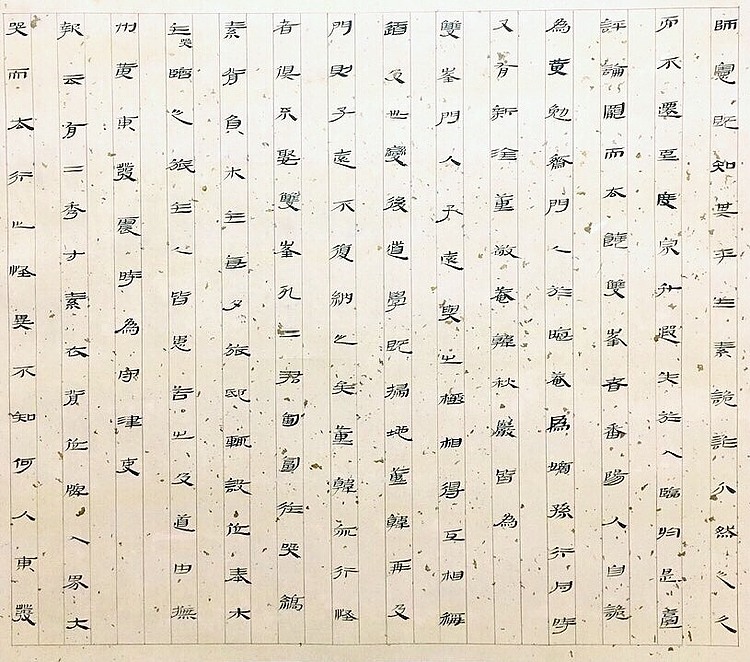 師憲既知其平生素詭詐不然之久
而不還至度宗升遐失於入臨归是臺
評論罷而太饒雙峯者番陽人自詭
為黄勉齋門人於晦菴爲嫡孫行同時
又有新淦董敬菴韓秋巖皆為
雙峯門人子遠與之極相得互相稱
道及世變後道學既掃地董韓再及
門則子遠不復納之矣董韓亦行怪
者俱不娶雙峯死二君匍匐往哭縞
素背負木主每夕旅邸輒設位奉木
主哭臨之旅主人皆患苦之及道由撫
州黄東發震時為守津吏
報云有二秀才素衣背位牌入界大
哭而太行之怪異不知何人東發